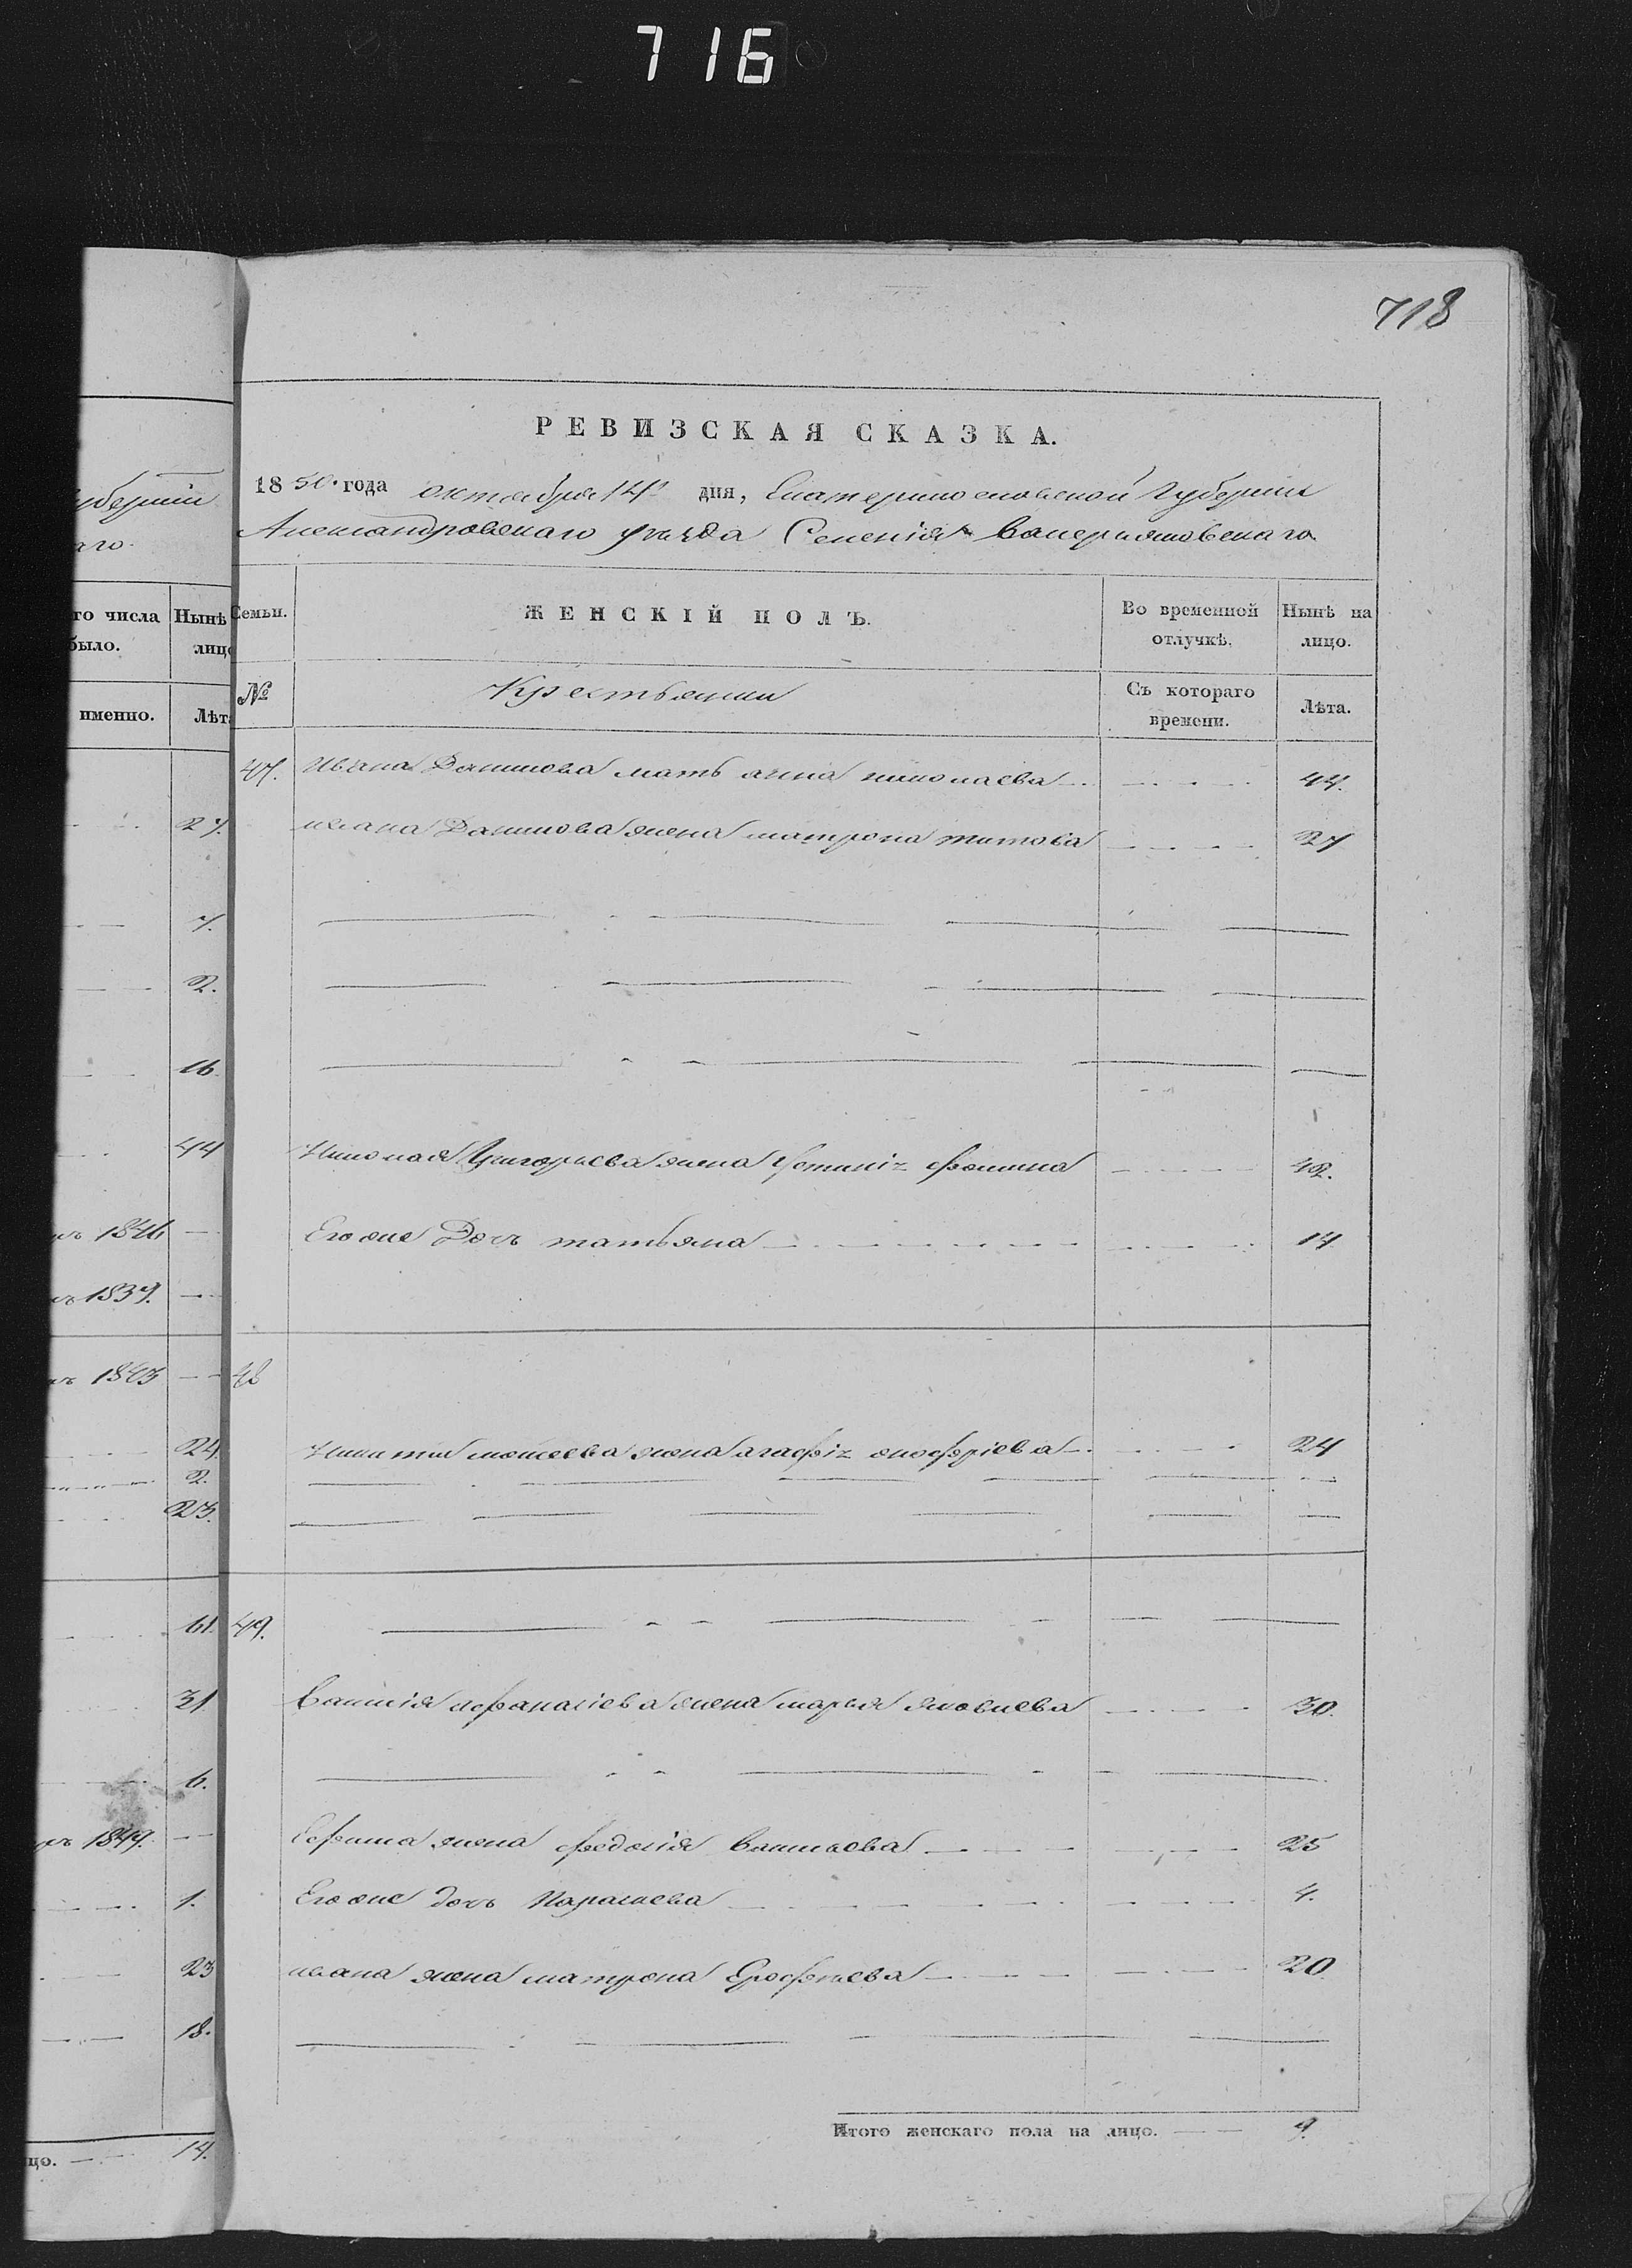 716
718
РЕВИЗСКАЯ СКАЗКА.
1850 года октября 14 дня, Екатеринославской Губернии
Александровскаго уѣзда Селенія Валерияновскаго
уберніи
аго
го числа было. Нынѣ лицо
именно. Лѣта
Семьи. ЖЕНСКІЙ ПОЛЪ. Во временной отлучкѣ. Нынѣ на лицо.
№ Крестьянки Съ котораго времени. Лѣта.
47. Ивана Данилова мать анна николаева 44.
27. ивана Данилова жена матрона титова 27
7.
2.
16
44 Николая Григорьева жена Фотинія фомина 42.
1846 Его же Дочь татьяна 14
1839.
1843 48
24. Никиты моисеева жена агафія онофріева 24
2.
23.
61. 49.
31 Василія афанасіева жена марья яковлева 30.
6.
1849. Ефима жена федосія васильева 25
1. Его же дочь Парасковія 4.
23 ивана жена матрона Ерофеева 20
18.
Итого женскаго пола на лицо. 9.
цо. 14.